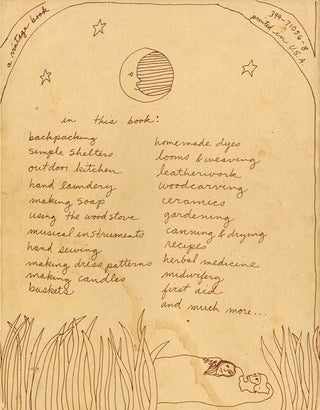 a vintage book
394-71056-8
printed in U.S.A.
in this book:
backpacking
simple shelters
outdoor kitchen
hand laundery
making soap
using the woodstove
musical instruments
hand sewing
making dress patterns
making candles
baskets
homemade dyes
looms & weaving
leatherwork
woodcarving
ceramics
gardening
canning & drying
recipes
herbal medicine
midwifery
first aid
and much more...